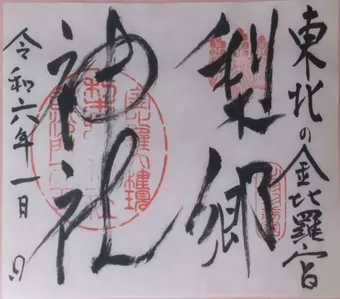 東北の金比羅宮
梨郷
神社
令和六年一月 日